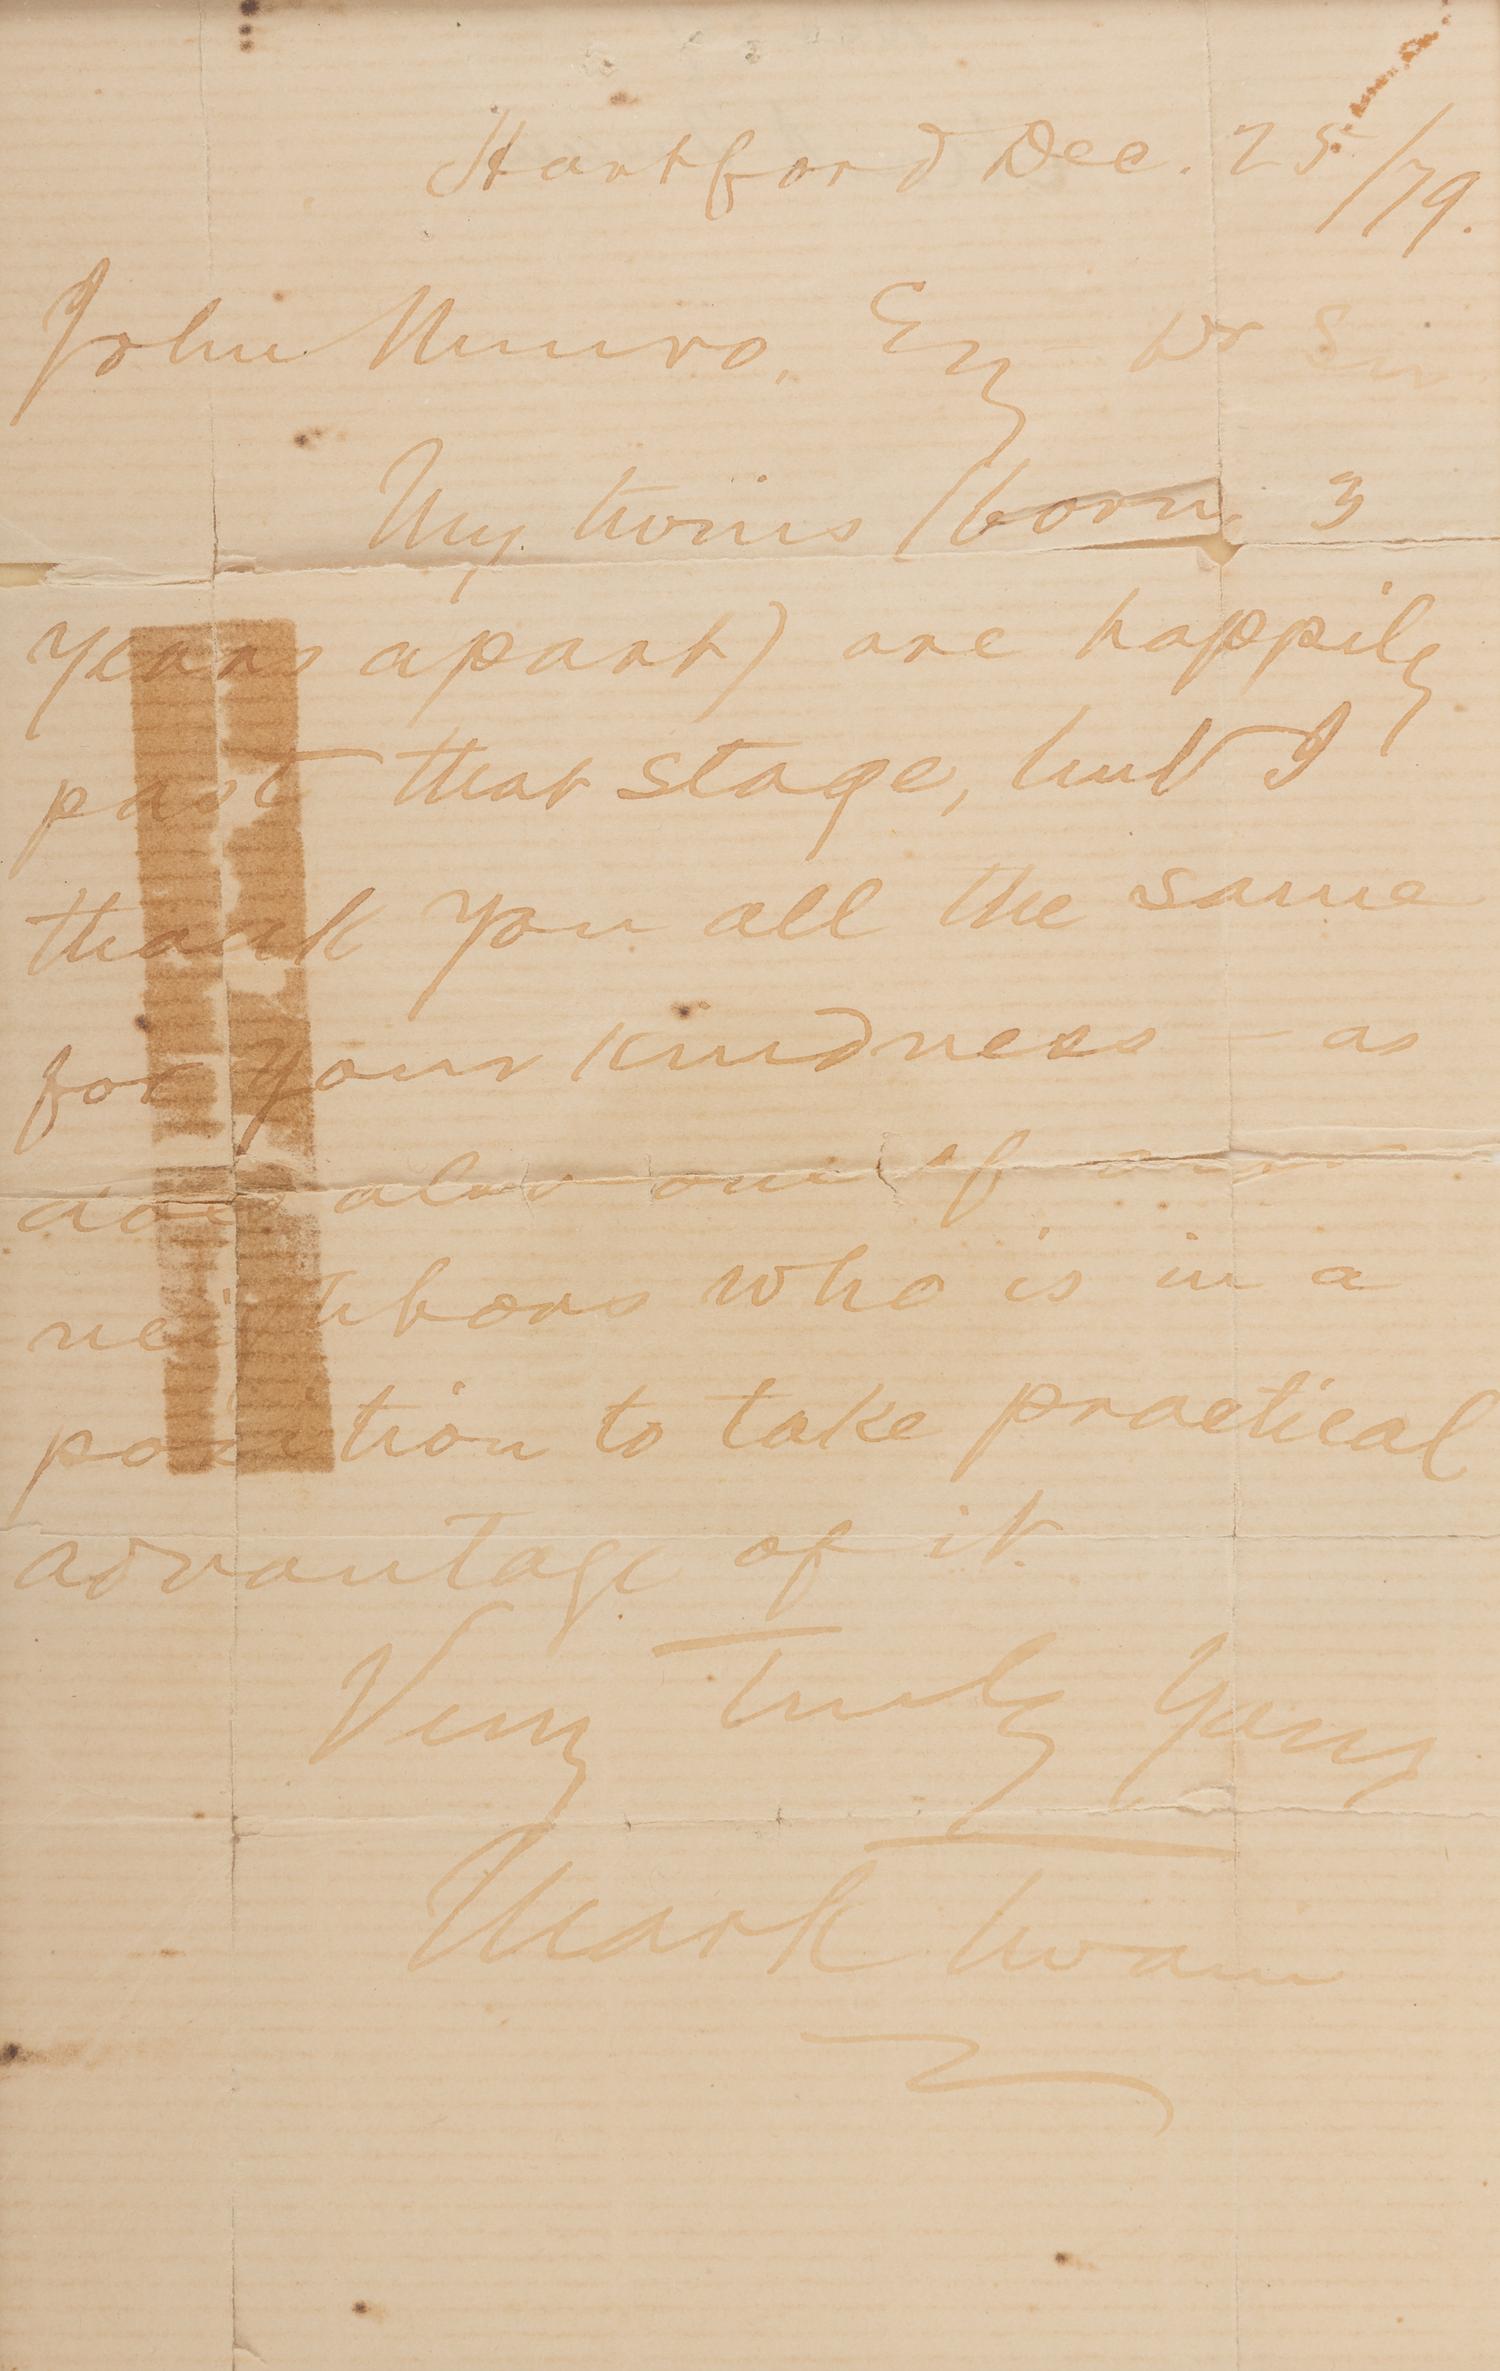 Hartford Dec. 25/79.
John Munro, Esq Dr Sir
My twins (born 3
years apart) are happily
past that stage, but I
thank you all the same
for your kindness — as
does also one of our
neighbors who is in a
position to take practical
advantage of it.
Very Truly Yours
Mark Twain